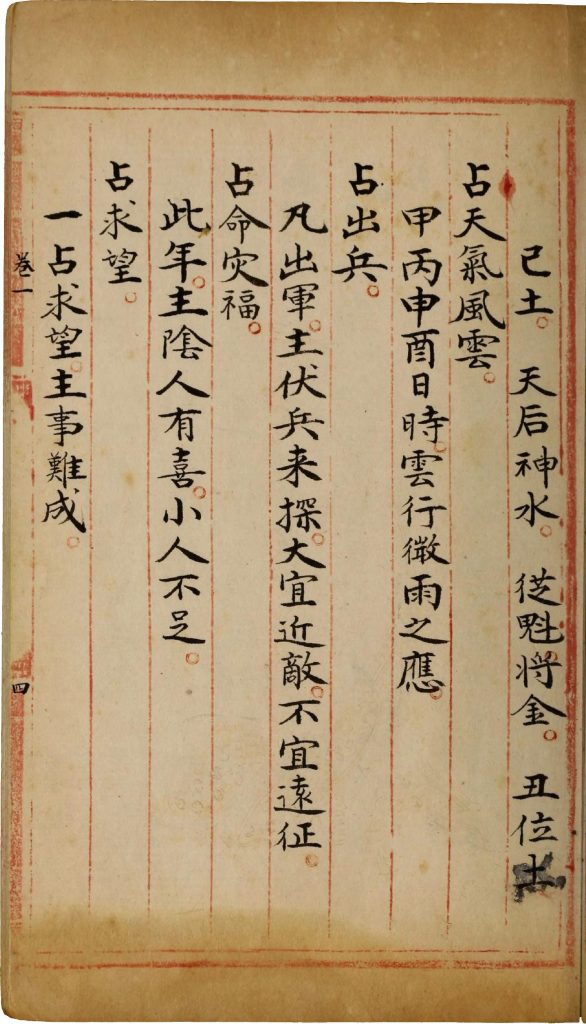 己土。天后神水。從魁將金。丑位土
占天氣風雲。
甲丙申酉日時。雲行微雨之應。
占出兵。
凡出軍。主伏兵来探。大宜近敵。不宜遠征。
占命灾福。
此年。主陰人有喜。小人不足。
占求望。
一占求望。主事難成。
卷一
四